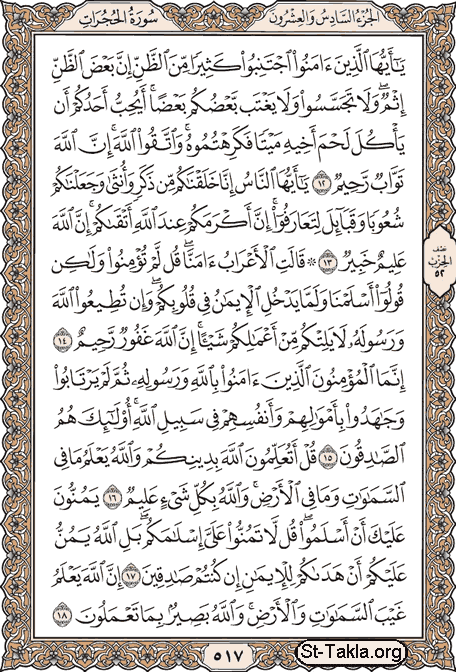 سُورَةُ الحُجُرَاتِ
الجُزْءُ السَّادِسُ وَالعِشْرُونَ
يَٰٓأَيُّهَا ٱلَّذِينَ ءَامَنُوا۟ ٱجْتَنِبُوا۟ كَثِيرًا مِّنَ ٱلظَّنِّ إِنَّ بَعْضَ ٱلظَّنِّ
إِثْمٌ ۖ وَلَا تَجَسَّسُوا۟ وَلَا يَغْتَب بَّعْضُكُم بَعْضًا ۚ أَيُحِبُّ أَحَدُكُمْ أَن
يَأْكُلَ لَحْمَ أَخِيهِ مَيْتًا فَكَرِهْتُمُوهُ ۚ وَٱتَّقُوا۟ ٱللَّهَ ۚ إِنَّ ٱللَّهَ
تَوَّابٌ رَّحِيمٌ ١٢ يَٰٓأَيُّهَا ٱلنَّاسُ إِنَّا خَلَقْنَٰكُم مِّن ذَكَرٍ وَأُنثَىٰ وَجَعَلْنَٰكُمْ
شُعُوبًا وَقَبَآئِلَ لِتَعَارَفُوٓا۟ ۚ إِنَّ أَكْرَمَكُمْ عِندَ ٱللَّهِ أَتْقَىٰكُمْ ۚ إِنَّ ٱللَّهَ
عَلِيمٌ خَبِيرٌ ١٣ ۞ قَالَتِ ٱلْأَعْرَابُ ءَامَنَّا ۖ قُل لَّمْ تُؤْمِنُوا۟ وَلَٰكِن
قُولُوٓا۟ أَسْلَمْنَا وَلَمَّا يَدْخُلِ ٱلْإِيمَٰنُ فِى قُلُوبِكُمْ ۖ وَإِن تُطِيعُوا۟ ٱللَّهَ
وَرَسُولَهُۥ لَا يَلِتْكُم مِّنْ أَعْمَٰلِكُمْ شَيْـًٔا ۚ إِنَّ ٱللَّهَ غَفُورٌ رَّحِيمٌ ١٤
إِنَّمَا ٱلْمُؤْمِنُونَ ٱلَّذِينَ ءَامَنُوا۟ بِٱللَّهِ وَرَسُولِهِۦ ثُمَّ لَمْ يَرْتَابُوا۟
وَجَٰهَدُوا۟ بِأَمْوَٰلِهِمْ وَأَنفُسِهِمْ فِى سَبِيلِ ٱللَّهِ ۚ أُو۟لَٰٓئِكَ هُمُ
ٱلصَّٰدِقُونَ ١٥ قُلْ أَتُعَلِّمُونَ ٱللَّهَ بِدِينِكُمْ وَٱللَّهُ يَعْلَمُ مَا فِى
ٱلسَّمَٰوَٰتِ وَمَا فِى ٱلْأَرْضِ ۚ وَٱللَّهُ بِكُلِّ شَىْءٍ عَلِيمٌ ١٦ يَمُنُّونَ
عَلَيْكَ أَنْ أَسْلَمُوا۟ ۖ قُل لَّا تَمُنُّوا۟ عَلَىَّ إِسْلَٰمَكُم ۖ بَلِ ٱللَّهُ يَمُنُّ
عَلَيْكُمْ أَنْ هَدَىٰكُمْ لِلْإِيمَٰنِ إِن كُنتُمْ صَٰدِقِينَ ١٧ إِنَّ ٱللَّهَ يَعْلَمُ
غَيْبَ ٱلسَّمَٰوَٰتِ وَٱلْأَرْضِ ۚ وَٱللَّهُ بَصِيرٌۢ بِمَا تَعْمَلُونَ ١٨
نصف
الحزب
٥٢
٥١٧
St-Takla.org